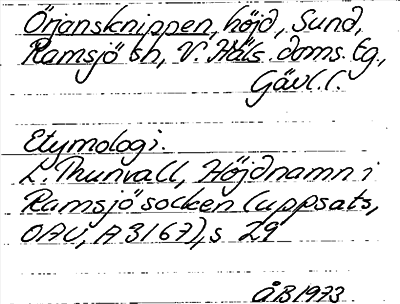 Örjansknippen, höjd, Sund,
Ramsjö sn, V. Häls. doms. tg.,
Gävl. l.
Etymologi.
L. Thunvall, Höjdnamn i
Ramsjö socken (uppsats,
OAU, A 3167), s 29
ÅB 1973